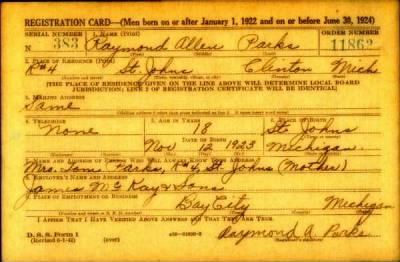 REGISTRATION CARD—(Men born on or after January 1, 1922 and on or before June 30, 1924)
SERIAL NUMBER 1. NAME (Print) ORDER NUMBER
N 383 Raymond Allen Parks 11862
(First) (Middle) (Last)
2. PLACE OF RESIDENCE (Print)
R#4 St. Johns Clinton Mich
(Number and street) (Town, township, village, or city) (County) (State)
[THE PLACE OF RESIDENCE GIVEN ON THE LINE ABOVE WILL DETERMINE LOCAL BOARD
JURISDICTION; LINE 2 OF REGISTRATION CERTIFICATE WILL BE IDENTICAL]
3. MAILING ADDRESS
Same
(Mailing address if other than place indicated on line 2. If same insert word same)
4. TELEPHONE 5. AGE IN YEARS 6. PLACE OF BIRTH
None 18 St. Johns
DATE OF BIRTH
Nov 12 1923 Michigan
(Mo.) (Day) (Yr.) (State or country)
7. NAME AND ADDRESS OF PERSON WHO WILL ALWAYS KNOW YOUR ADDRESS
Mrs. Parks, R#4, St. Johns (Mother)
8. EMPLOYER'S NAME AND ADDRESS
James McKay & Sons
9. PLACE OF EMPLOYMENT OR BUSINESS
Bay City Michigan
(Number and street or R. F. D. number) (Town) (County) (State)
I AFFIRM THAT I HAVE VERIFIED ABOVE ANSWERS AND THAT THEY ARE TRUE.
D. S. S. Form 1
(Revised 6-1-42) (over) Raymond A. Parks
(Registrant's signature)